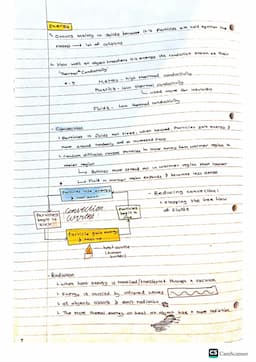 energy
Occurs mainly in solids because it's particles are held together the
most → lot of
How well an object transfers it's energy the conduction known as their
"Thermal" Conductivity
e.g Metals - high thermal conductivity
Plastics - low thermal conductivity
used more for
Fluids - low thermal conductivity
- Convection
Particles in fluids not fixed, when heated particles gain energy &
move around randomly and at increased speed
random diffusion causes particles to move away from warmer region to
cooler region
Particles more spread out in warmer region than cooler
Fluid in warmer region expands & becomes less dense
Particles lose energy
& cool down
Particles
begin to
sink
Convection
current
Particles
begin to
rise
Particle gain energy
& heat up
heat source
- Reducing convection:
stopping the free flow
of fluids
- Radiation
when heat energy is transferred through a vacuum
Energy is carried by infrared waves
all objects absorb & emit radiation
The more thermal energy or heat an object has = more radiation
CS CamScanner